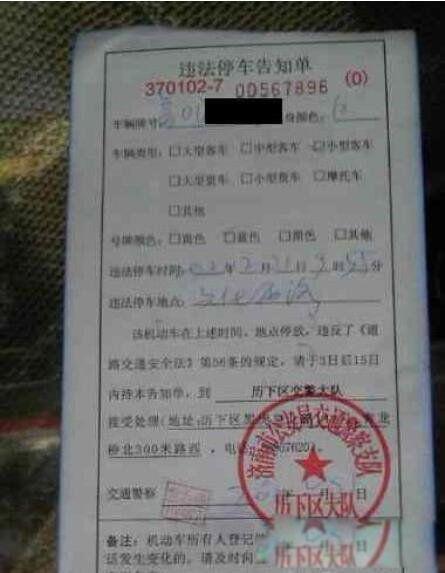 违法停车告知单
370102-7 00567896 (0)
车辆牌号 份颜色:
车辆类型: □大型客车 □中型客车 □小型客车
□大型货车 □小型货车 □摩托车
□其他
号牌颜色: □黄色 □蓝色 □黑色 □其他
违法停车时间: 年2月21日9时55分
违法停车地点:
该机动车在上述时间、地点停放,违反了《道
路交通安全法》第56条的规定,请于3日后15日
内持本告知单,到 历下区交警大队
接受处理(地址:历下区 龙
桥北300米路西,电话
交通警察 月 日
济南市公安局交通警察支队
历下区大队
备注:机动车所有人登记
话发生变化的,请及时向